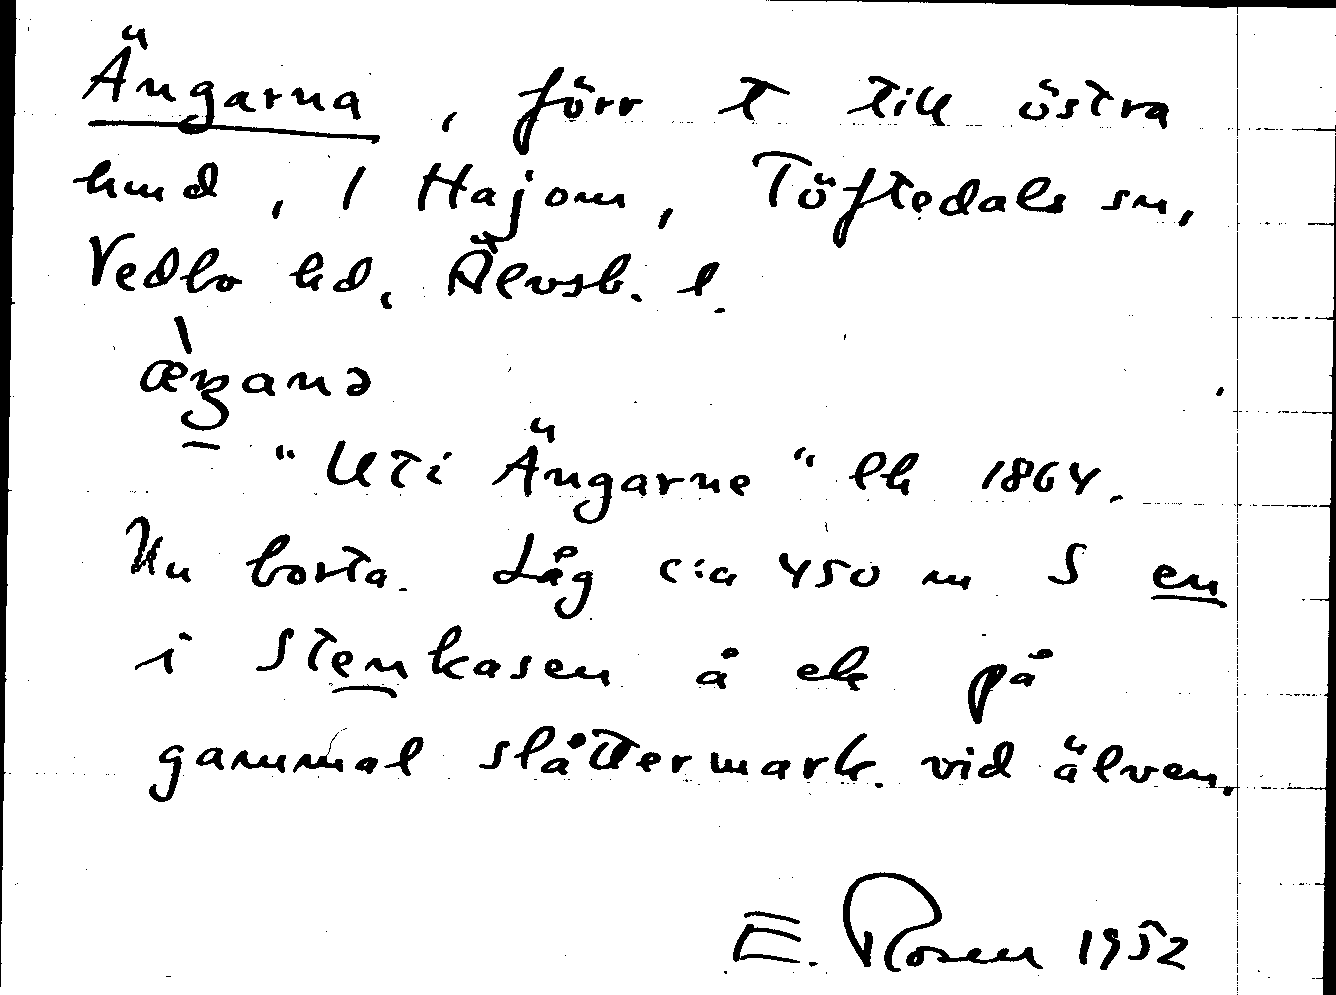 Ängarna, förr t till östra
hmd, 1 Hajom, Töftedals sn,
Vedbo hd, Älvsb. l.
æ̀ŋanə
"Uti Ängarne" lk 1864.
Nu borta. Låg c:a 450 m S en
i Stenkasen å ek på
gammal slåttermark vid älven.
E. Rosen 1952